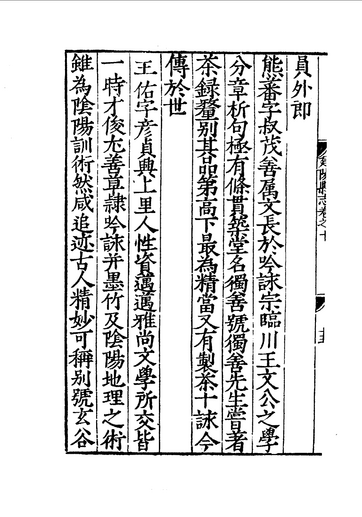 員外郎
熊蕃字叔茂善属文長於吟詠宗臨川王文公之學
分章析句極有條貫築堂名獨善號獨善先生嘗著
茶録釐别其品第高下最為精當又有製茶十詠今
傳於世
王佑字彦貞興上里人性資邁邁雅尚文學所交皆
一時才俊尤善草隷吟詠并墨竹及陰陽地理之術
雖為陰陽訓術然咸追迹古人精妙可稱别號玄谷
建陽縣志卷之十